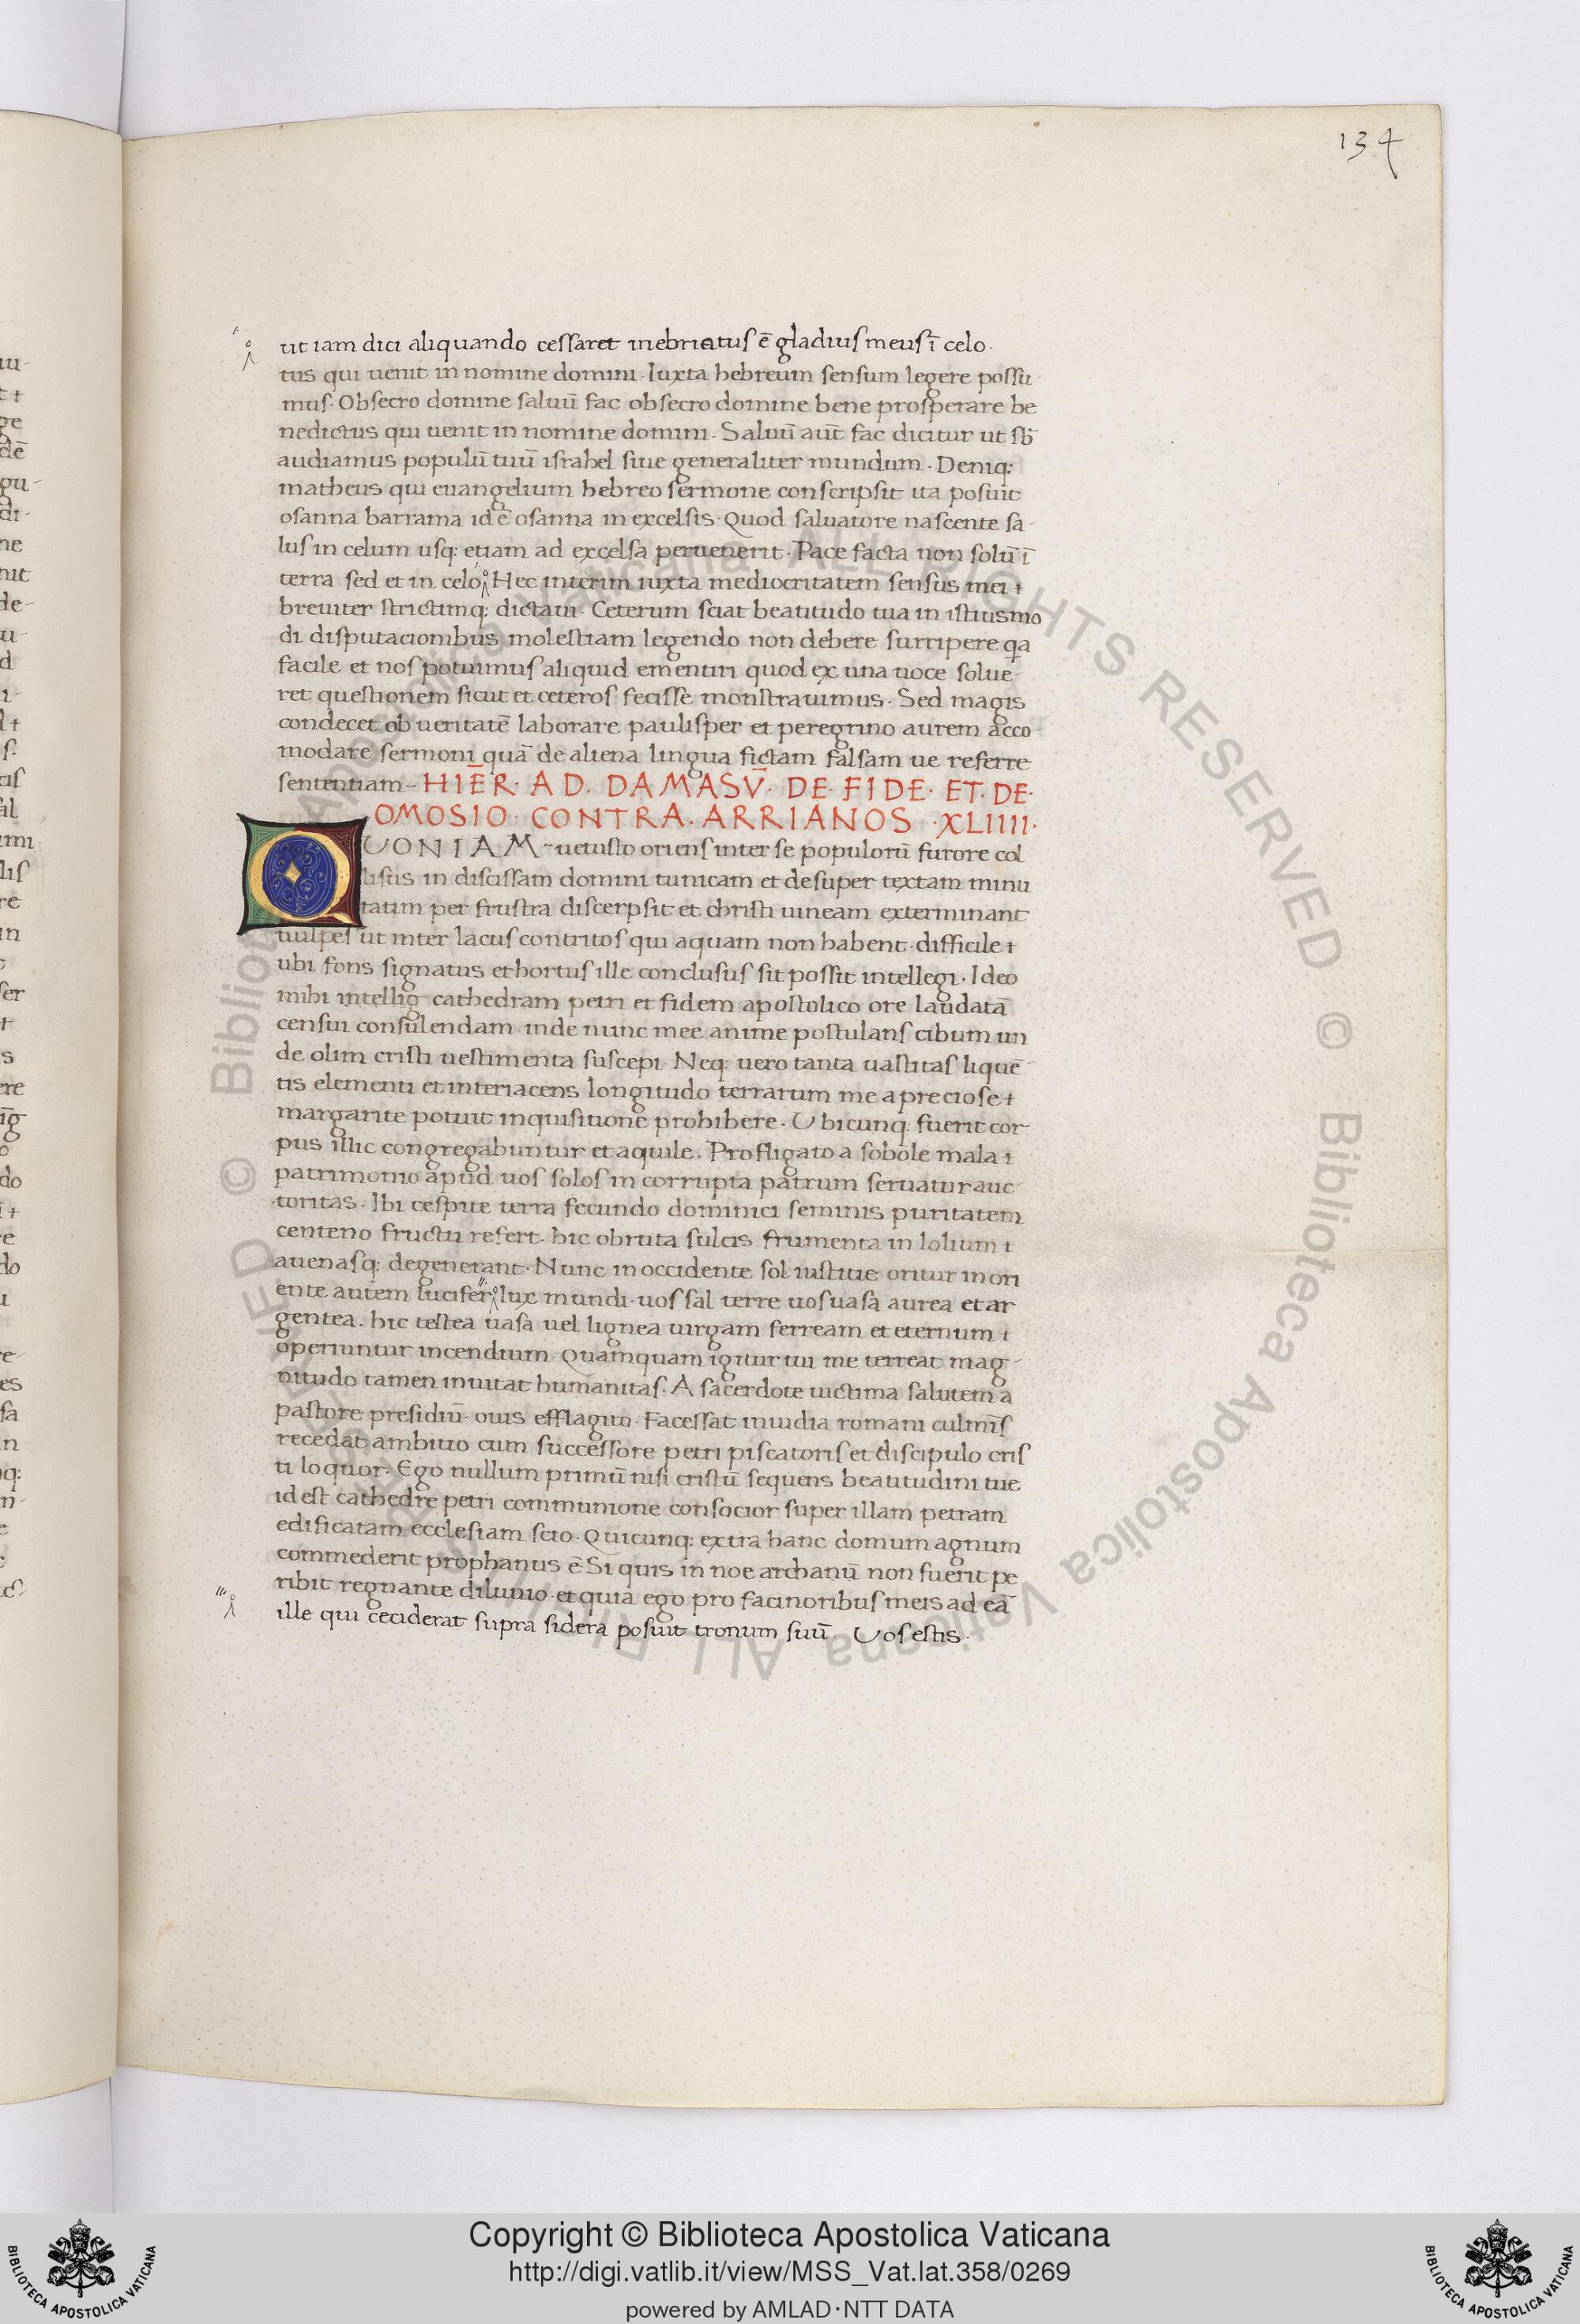 134
ut iam dici aliquando cessaret inebriatus ē gladius meus ī celo·
tus qui uenit in nomine domini· Iuxta hebreum sensum legere possu
mus· Obsecro domine saluū fac obsecro domine bene prosperare be
nedictus qui uenit in nomine domini· Saluū aut̄ fac dicitur ut sb̄
audiamus populū tuū israhel siue generaliter mundum· Deniq:
matheus qui euangelium hebreo sermone conscripsit ita posuit
osanna barrama id ē osanna in excelsis· Quod saluatore nascente sa-
lus in celum usq: etiam ad excelsa peruenerit· Pace facta non solū ī
terra sed et in celo· Hec interim iuxta mediocritatem sensus mei
breuiter strictimq: dictaui· Ceterum sciat beatitudo tua in istiusmo
di disputacionibus molestiam legendo non debere surripere qa
facile et nos potuimus aliquid ementiri quod ex una uoce solue-
ret questionem sicut et ceteros fecisse monstrauimus· Sed magis
condecet ob ueritatē laborare paulisper et peregrino aurem acco-
modare sermoni quā de aliena lingua fictam falsam ue referre
sententiam- HIĒR· AD· DAMASV̄· DE· FIDE· ET· DE·
OMOSIO· CONTRA· ARRIANOS ·XLIIII·
QUONIAM- uetusto oriens inter se populorū furore col
lisus in discissam domini tunicam et desuper textam minu
tatim per frustra discerpsit et christi uineam exterminant
uulpes ut inter lacus contritos qui aquam non habent· difficile
ubi fons signatus et hortus ille conclusus sit possit intellegi· Ideo
mihi intellig cathedram petri et fidem apostolico ore laudatā
censui consulendam inde nunc mee anime postulans cibum un
de olim cristi uestimenta suscepi· Neq: uero tanta uastitas liquē-
tis elementi et interiacens longitudo terrarum me a preciose
margarite potuit inquisitione prohibere· Ubicunq: fuerit cor-
pus illic congregabuntur et aquile· Profligato a sobole mala
patrimonio apud uos solos in corrupta patrum seruatur auc-
toritas· Ibi cespite terra fecundo dominici seminis puritatem
centeno fructu refert· hic obruta sulcis frumenta in lolium
auenasq: degenerant· Nunc in occidente sol iustitie oritur in ori
ente autem lucifer· lux mundi· uos sal terre uos uasa aurea et ar
gentea· hic testea uasa uel lignea uirgam ferream et eternum
operiuntur incendium· Quamquam igitur tui me terreat mag-
nitudo tamen inuitat humanitas· A sacerdote uictima salutem a
pastore presidiū ouis efflagito· Facessat inuidia romani culminis
recedat ambitio cum successore petri piscatoris et discipulo cris
ti loquor· Ego nullum primū nisi cristū sequens beatitudini tue
id est cathedre petri communione consocior super illam petram
edificatam ecclesiam scio· Quicunq: extra hanc domum agnum
commederit prophanus ē· Si quis in noe archanū non fuerit pe
ribit regnante diluuio· et quia ego pro facinoribus meis ad eā
ille qui ceciderat supra sidera posuit tronum suū· Uos estis·
Copyright © Biblioteca Apostolica Vaticana
http://digi.vatlib.it/view/MSS_Vat.lat.358/0269
powered by AMLAD·NTT DATA